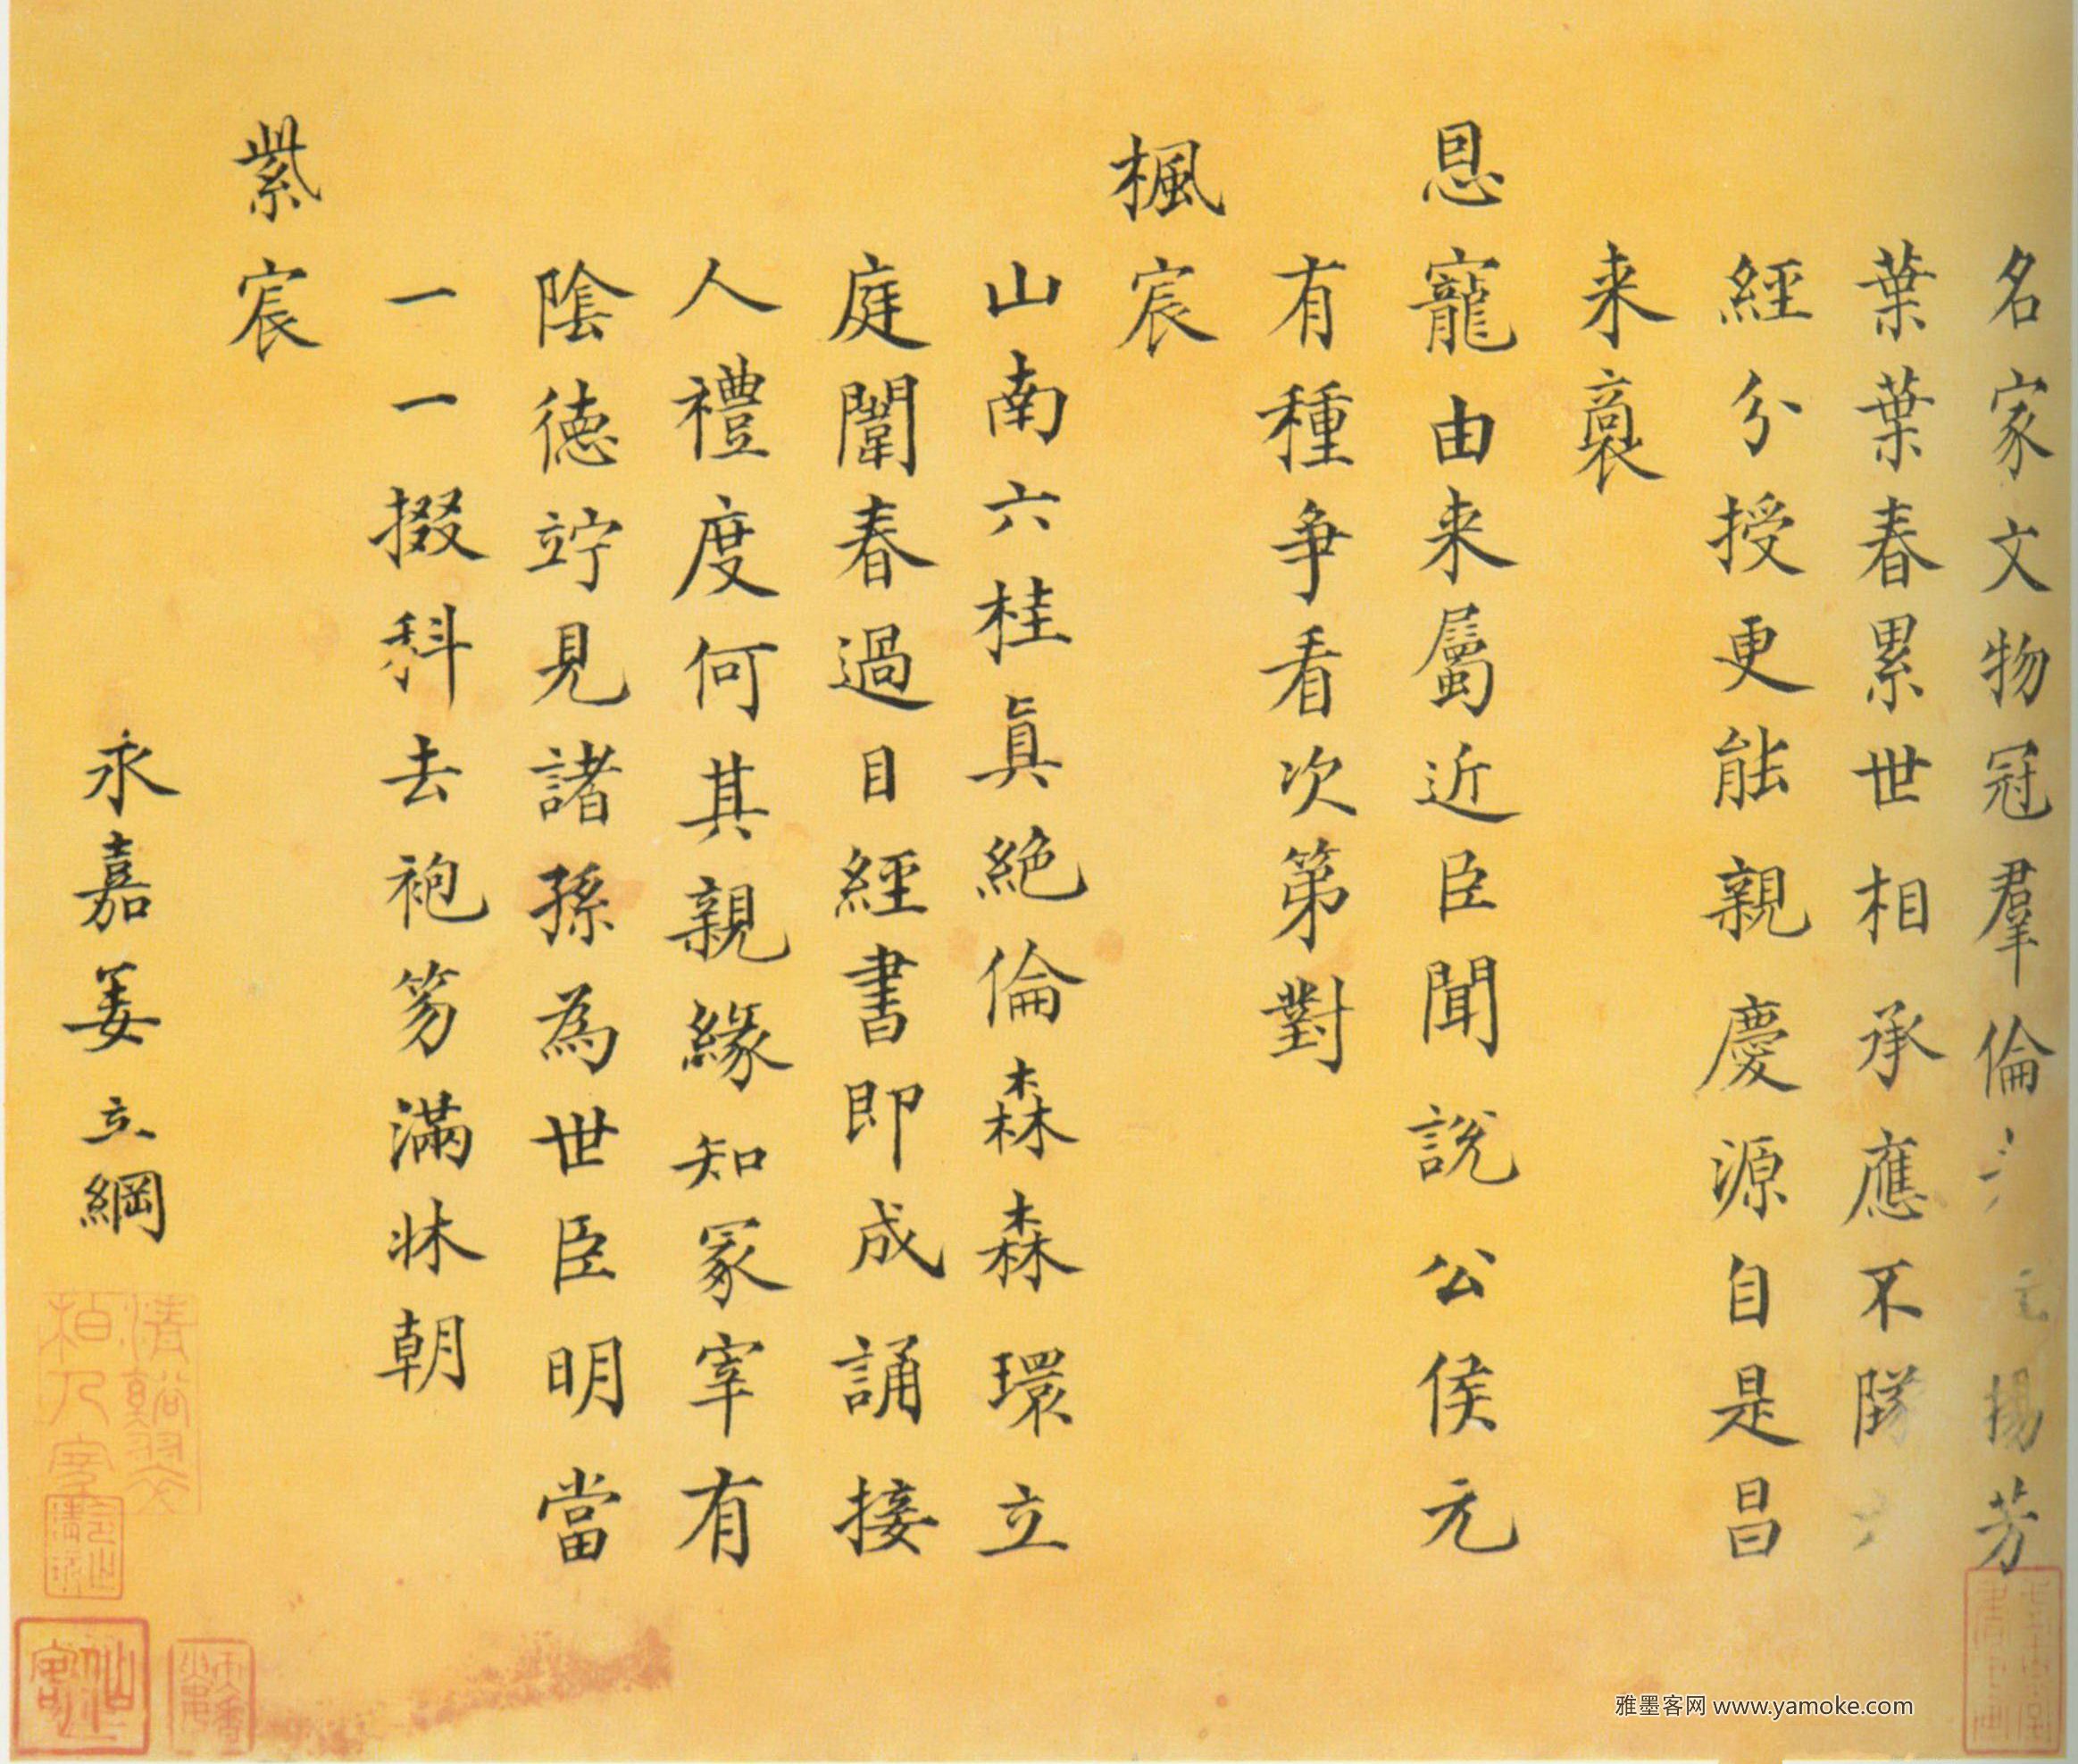 名家文物冠羣倫揚芳
葉葉春累世相承應不隊
經分授更能親慶源自是昌
来裔
恩寵由来屬近臣聞說公侯元
有種争看次第對
楓宸
山南六桂真絶倫森森環立
庭闈春過目經書即成誦接
人禮度何其親緣知冢宰有
陰德竚見諸孫為世臣明當
一一掇科去袍笏滿牀朝
紫宸
永嘉姜立綱
雅墨客网 www.yamoke.com